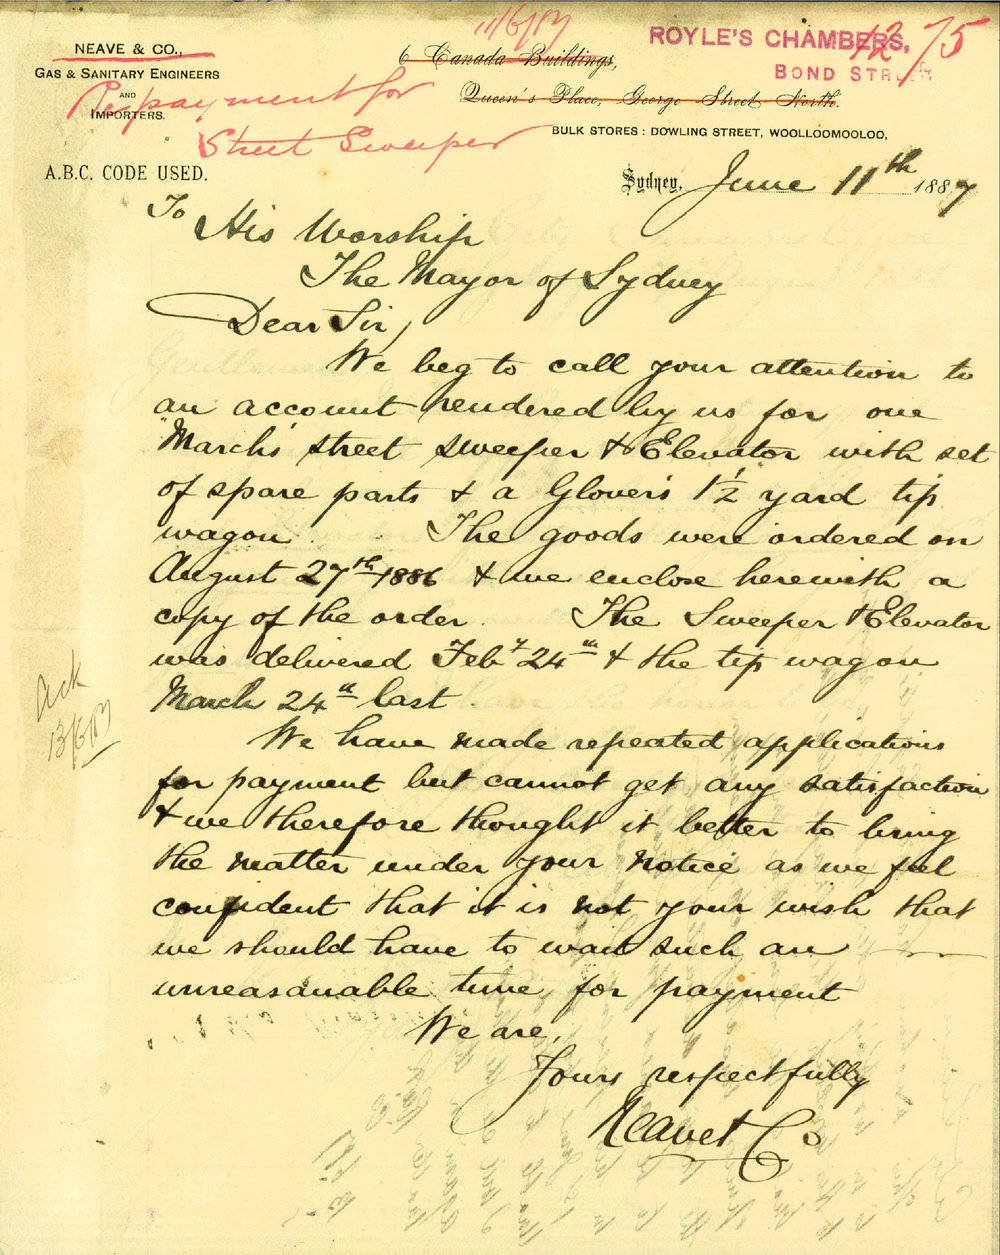 11/6/87
NEAVE & CO.,
GAS & SANITARY ENGINEERS
AND
IMPORTERS.
Re payment for
Street Sweeper
A.B.C. CODE USED.
6 Canada Buildings,
Queen's Place, George Street North.
ROYLE'S CHAMBERS,
BOND STREET
12/75
BULK STORES: DOWLING STREET, WOOLLOOMOOLOO,
Sydney, June 11th 1887
To His Worship
The Mayor of Sydney
Dear Sir,
We beg to call your attention to
an account rendered by us for one
"March's" street sweeper & Elevator with set
of spare parts & a Glover's 1½ yard tip
wagon. The goods were ordered on
August 27th 1886 & we enclose herewith a
copy of the order. The Sweeper & Elevator
was delivered Feby 24th & the tip wagon
March 24th last.
We have made repeated applications
for payment but cannot get any satisfaction
& we therefore thought it better to bring
the matter under your notice as we feel
confident that it is not your wish that
we should have to wait such an
unreasonable time for payment
We are,
Yours respectfully
Neave & Co
Ack
13/6/87